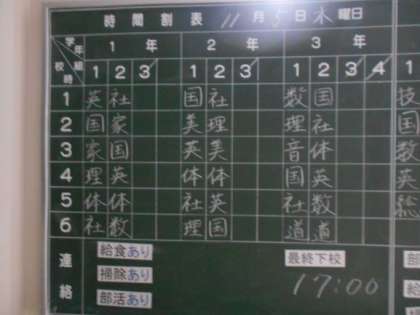 時間割表 11月5日木曜日
学年 組 校時 1年 2年 3年
1 2 3 1 2 3 1 2 3 4 1
1 英 社 国 社 数 国 技
2 国 家 美 理 理 社 国
3 家 国 英 美 音 体 数
4 理 英 体 体 国 英 英
5 体 体 社 英 社 数 総
6 社 数 理 国 道 道
連絡 給食あり 最終下校
掃除あり 17:00
部活あり